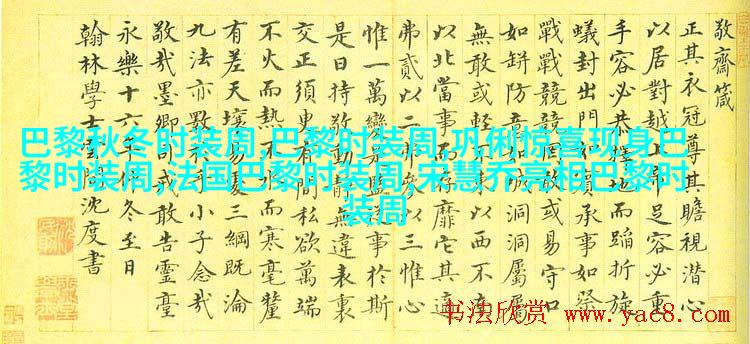 敬齋箴
正其衣冠尊其瞻視潛心
以居對越上足容必重
手容必恭地而蹈折旋
蟻封出門如承事如祭
戰戰兢兢罔敢或易守口
如缾防意如城洞洞屬屬
無敢或輕不東以西不南
以北當事而存靡它其適
弗貳以二弗參以三惟心
惟一萬變是監從事於斯
是日持敬動靜無違表裏
交正須臾有間私欲萬端
不火而熱不冰而寒毫釐
有差天壤易處三綱既淪
九法亦斁於乎小子念哉
敬哉墨卿司戒敢告靈臺
永樂十六年仲冬至日
翰林學士雲間沈度書
巴黎秋冬时装周,巴黎时装周,巩俐惊喜现身巴
黎时装周,法国巴黎时装周,宋慧乔亮相巴黎时
装周
书法欣赏
www.yac8.com